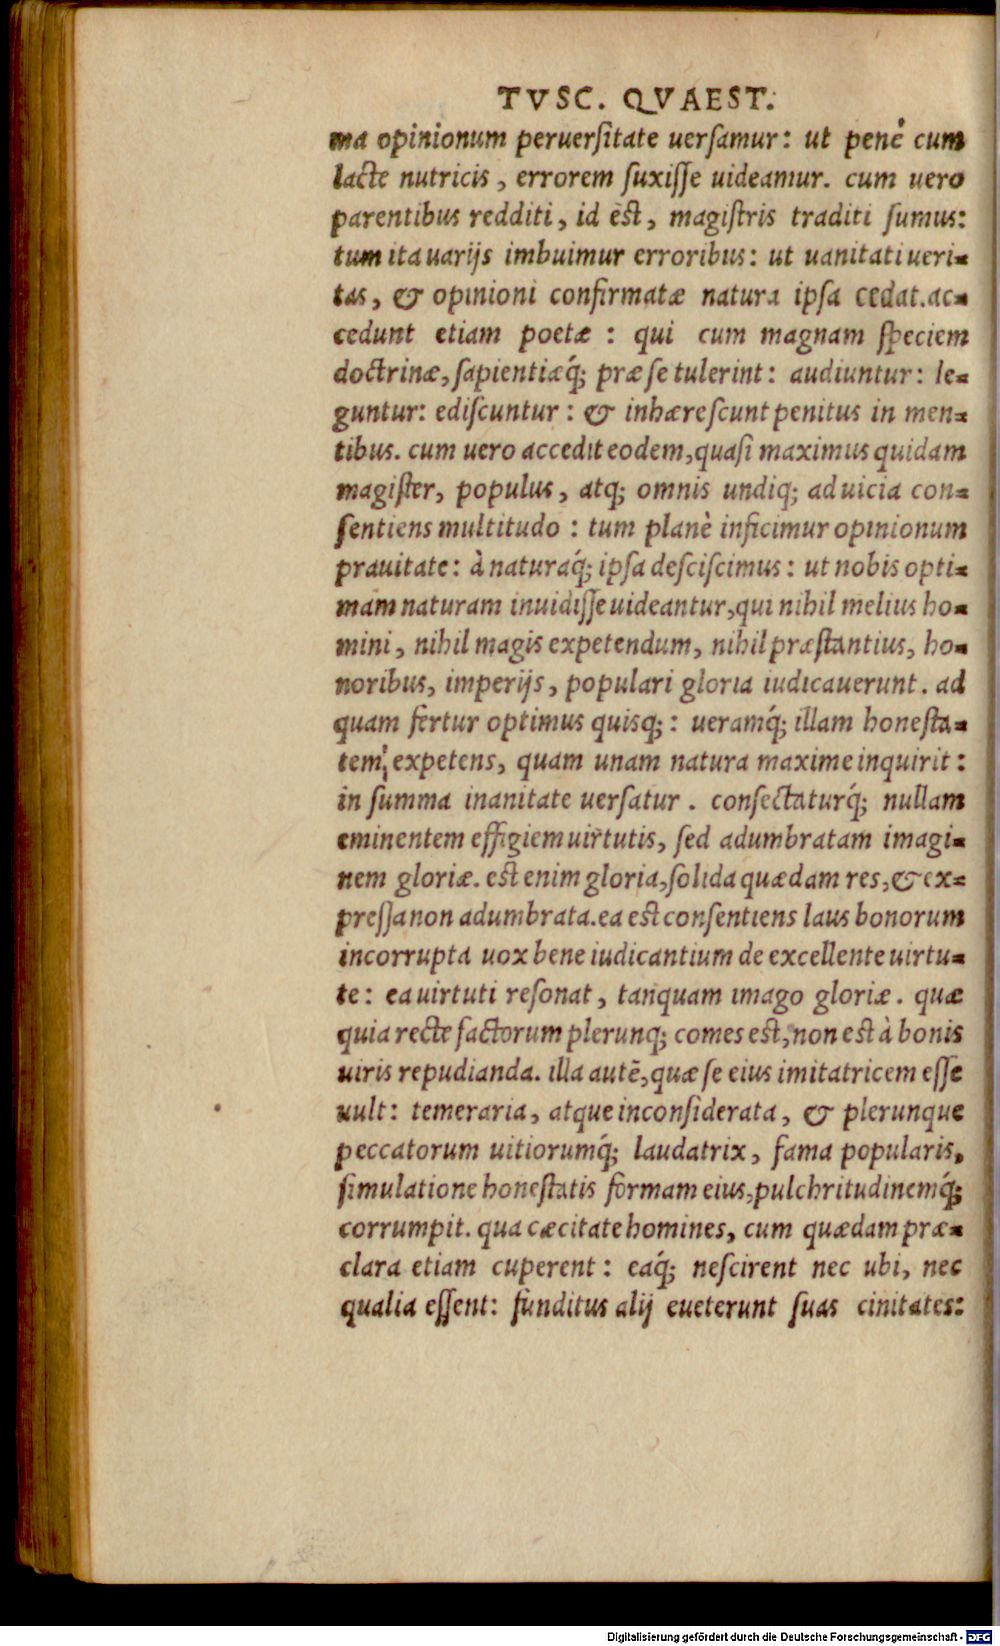 TVSC. QVAEST.
ma opinionum peruersitate uersamur: ut penè cum
lacte nutricis, errorem suxisse uideamur. cum uero
parentibus redditi, id est, magistris traditi sumus:
tum ita uarijs imbuimur erroribus: ut uanitati ueri-
tas, & opinioni confirmatæ natura ipsa cedat. ac-
cedunt etiam poetæ : qui cum magnam speciem
doctrinæ, sapientiæq́; præ se tulerint: audiuntur: le-
guntur: ediscuntur: & inhærescunt penitus in men-
tibus. cum uero accedit eodem, quasi maximus quidam
magister, populus, atq; omnis undiq; ad uicia con-
sentiens multitudo : tum planè inficimur opinionum
prauitate: à naturaq́; ipsa desciscimus: ut nobis opti-
mam naturam inuidisse uideantur, qui nihil melius ho-
mini, nihil magis expetendum, nihil præstantius, ho-
noribus, imperijs, populari gloria iudicauerunt. ad
quam fertur optimus quisq; : ueramq́; illam honesta-
tem expetens, quam unam natura maxime inquirit:
in summa inanitate uersatur. consectaturq́; nullam
eminentem effigiem uirtutis, sed adumbratam imagi-
nem gloriæ. est enim gloria, solida quædam res, & ex-
pressa non adumbrata. ea est consentiens laus bonorum
incorrupta uox bene iudicantium de excellente uirtu-
te: ea uirtuti resonat, tanquam imago gloriæ. quæ
quia recte factorum plerunq; comes est, non est à bonis
uiris repudianda. illa autē, quæ se eius imitatricem esse
uult: temeraria, atque inconsiderata, & plerunque
peccatorum uitiorumq́; laudatrix, fama popularis,
simulatione honestatis formam eius, pulchritudinemq́;
corrumpit. qua cæcitate homines, cum quædam præ-
clara etiam cuperent: eaq́; nescirent nec ubi, nec
qualia essent: funditus alij eueterunt suas cinitates:
Digitalisierung gefördert durch die Deutsche Forschungsgemeinschaft - DFG